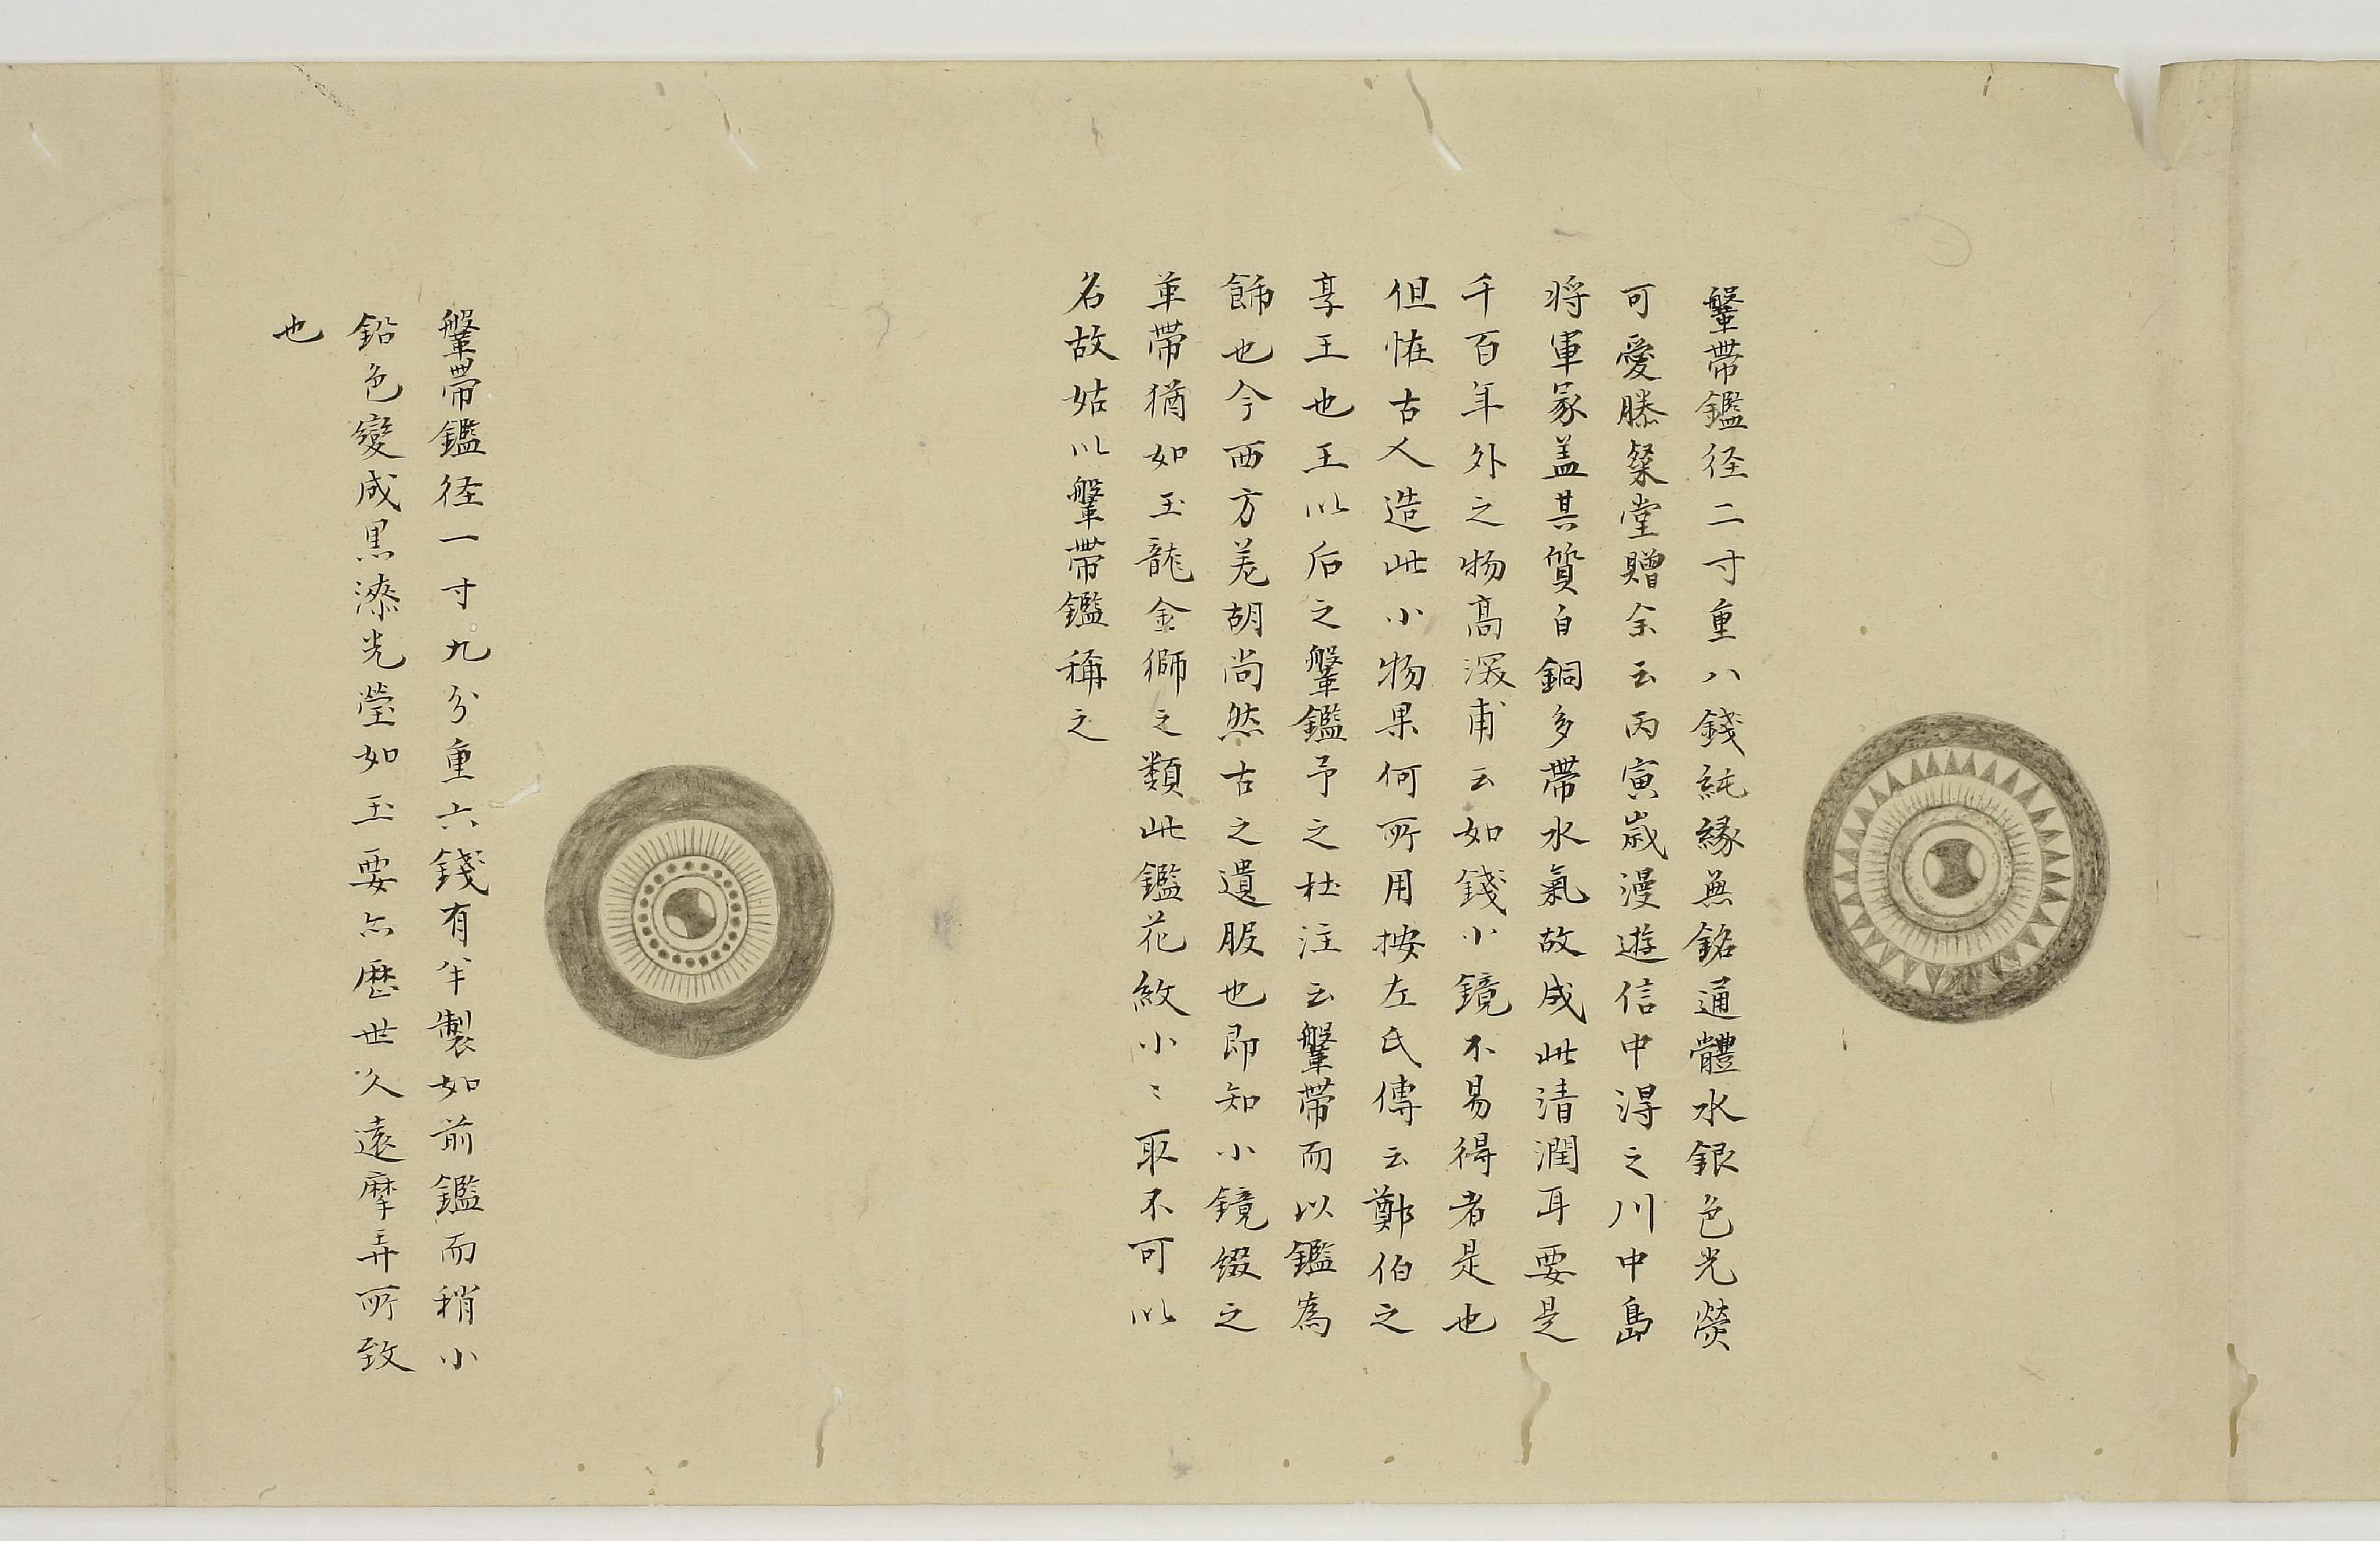 鞶帶鑑径二寸重八錢純縁無銘通體水銀色光熒
可愛滕粲堂贈余云丙寅歳漫遊信中得之川中島
将軍冢盖其質自銅多帶水氣故成此清潤耳要是
千百年外之物高深甫云如錢小鏡不易得者是也
但恠古人造此小物果何所用按左氏傳云鄭伯之
享王也王以后之鞶鑑予之杜注云鞶帶而以鑑為
飾也今西方羌胡尚然古之遺服也即知小鏡綴之
革帶猶如玉龍金獅之類此鑑花紋小〻取不可以
名故姑以鞶帶鑑稱之
鞶帶鑑径一寸九分重六錢有半製如前鑑而稍小
鉛色變成黒漆光瑩如玉要亦歴世久遠摩弄所致
也